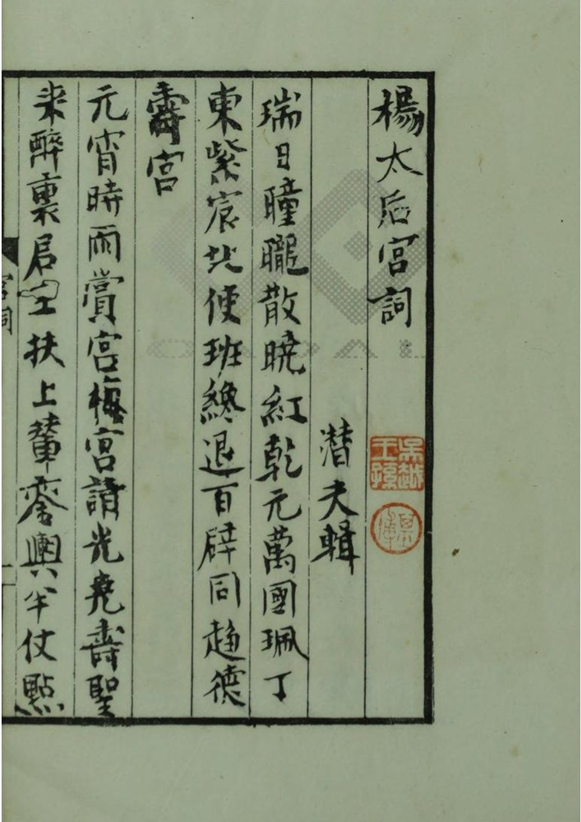 楊太后宮詞
潜夫輯
瑞日曈曨散曉紅乾元萬國珮丁
東紫宸北使班纔退百辟同趨德
壽宮
元宵時雨賞宮梅宮請光堯壽聖
来醉裏君王扶上輦鑾輿半仗點
宮詞
吳越王孫